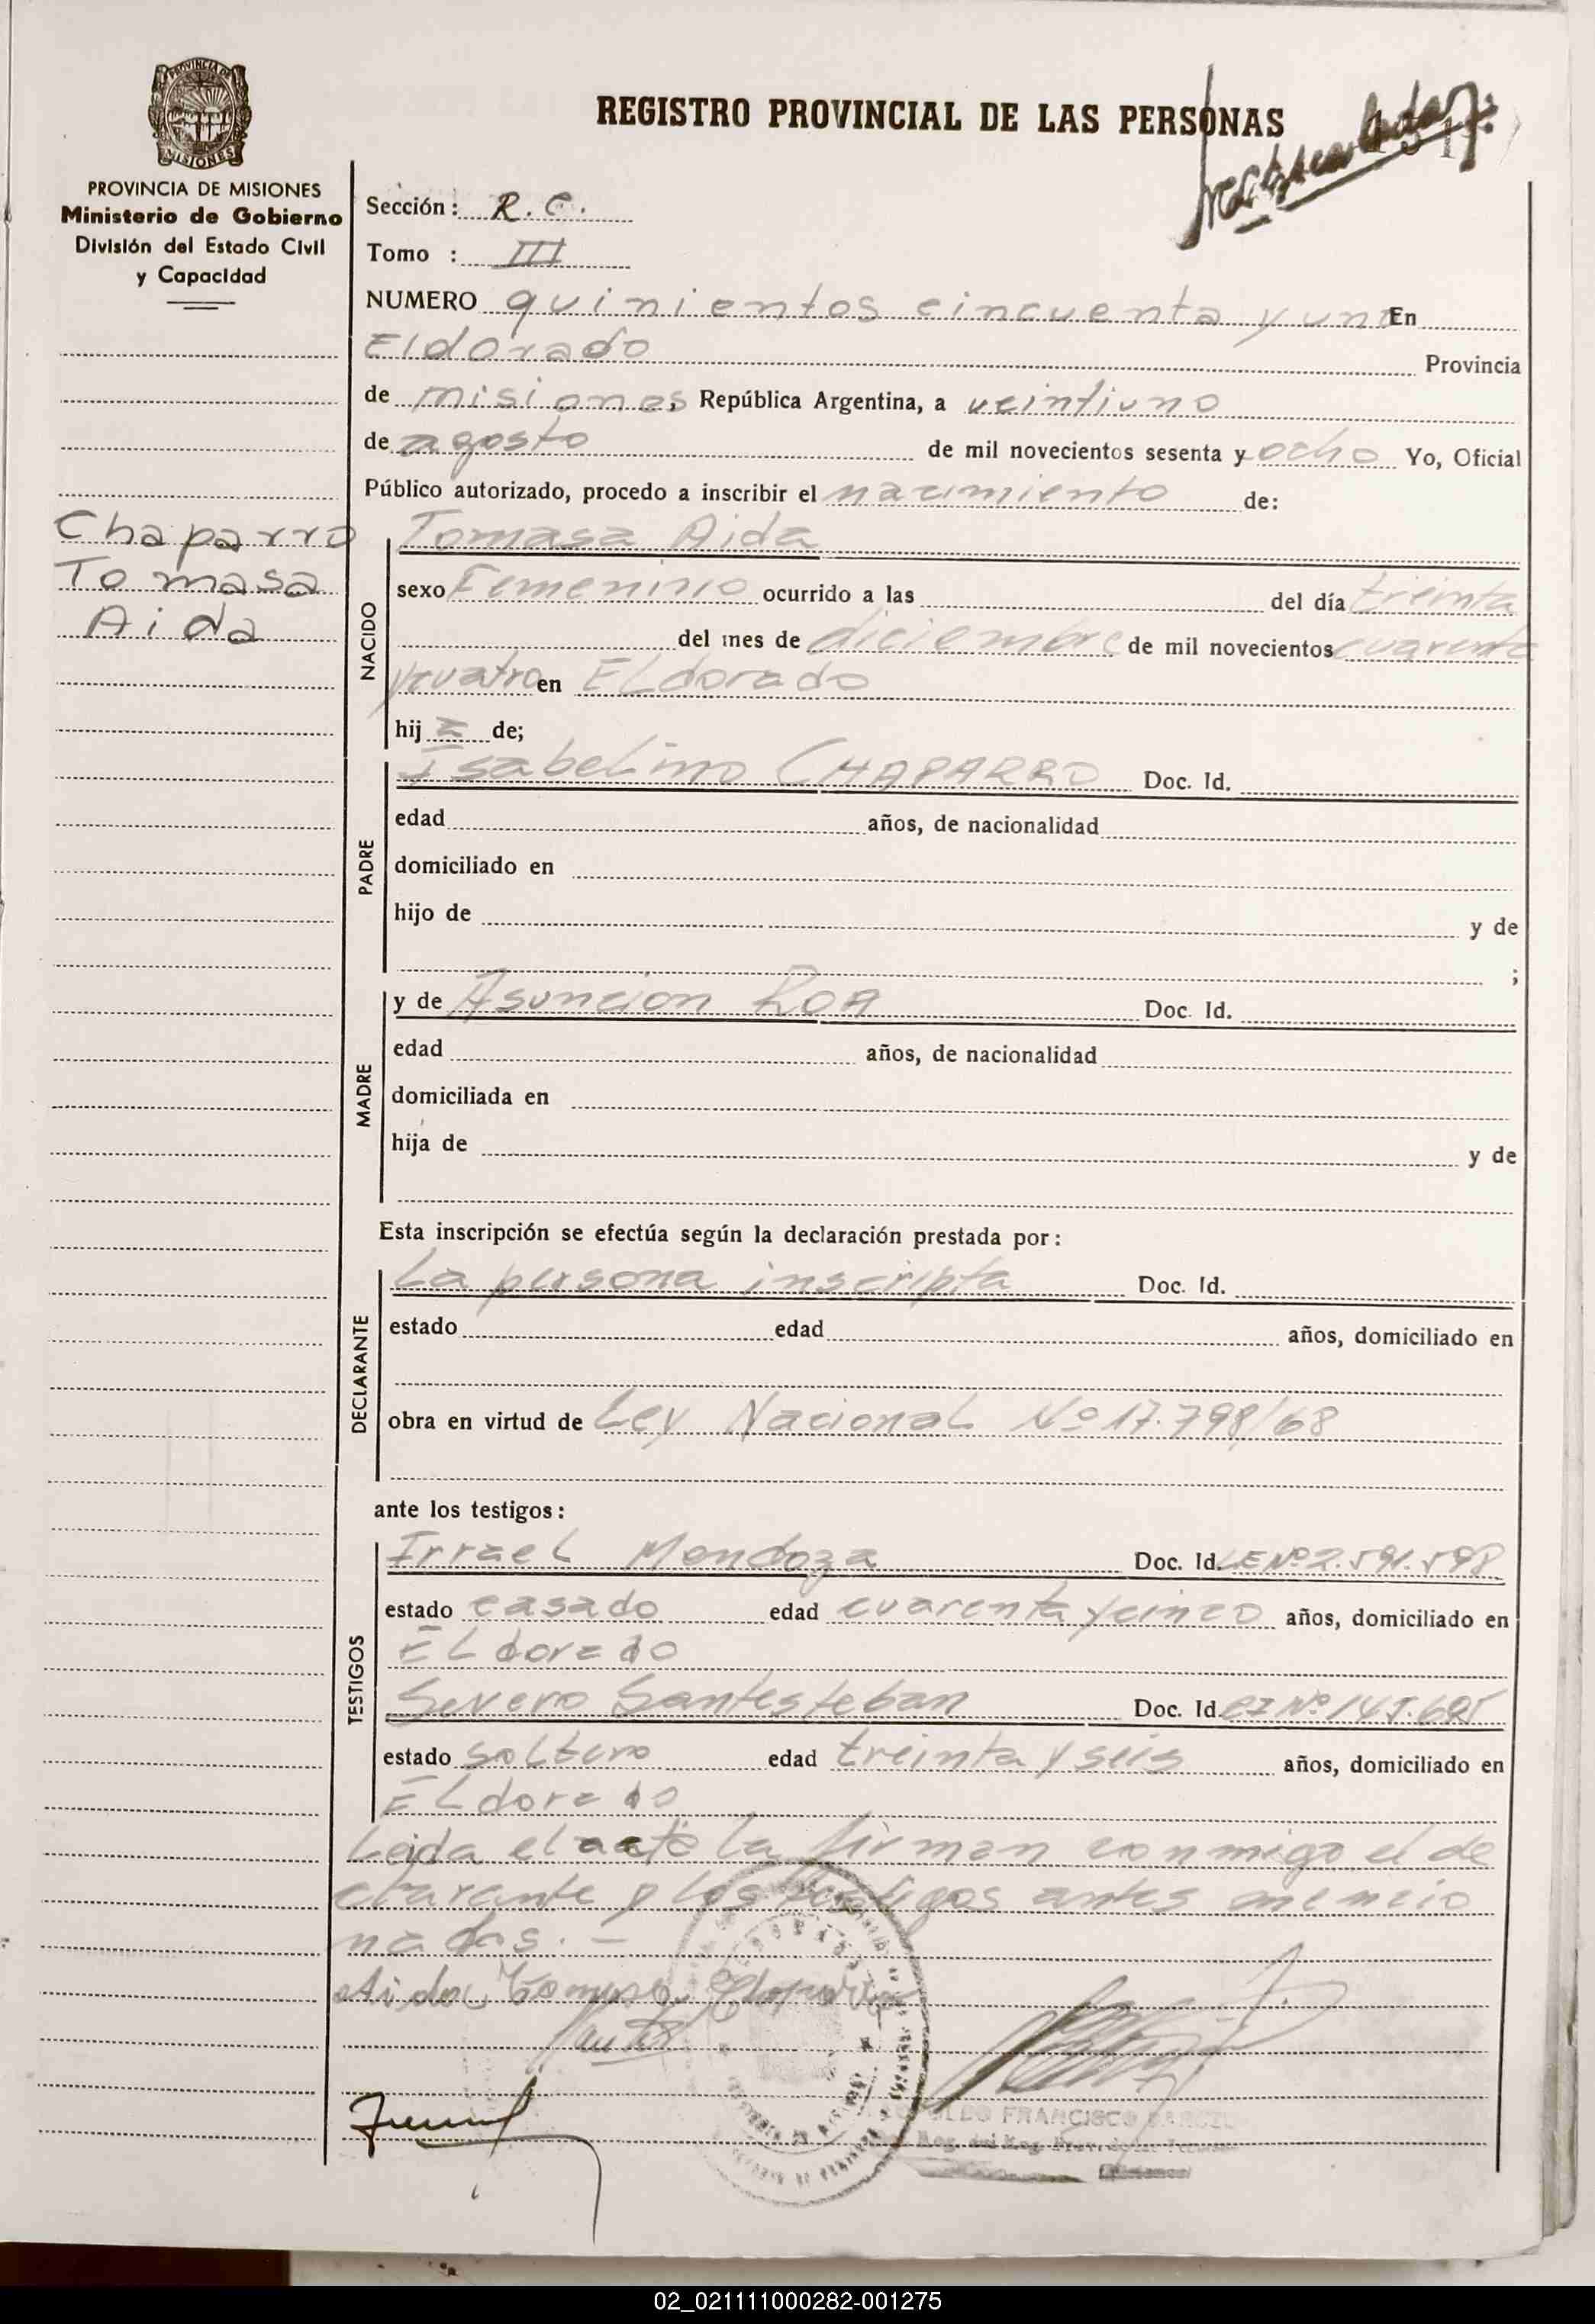 PROVINCIA DE
MISIONES
PROVINCIA DE MISIONES
Ministerio de Gobierno
División del Estado Civil
y Capacidad
REGISTRO PROVINCIAL DE LAS PERSONAS
Sección: R. C.
Tomo : III
NUMERO quinientos cincuenta y uno En
Eldorado Provincia
de misiones, República Argentina, a veintiuno
de agosto de mil novecientos sesenta y ocho Yo, Oficial
Público autorizado, procedo a inscribir el nacimiento de:
Chaparro
Tomasa
Aida
NACIDO
Tomasa Aida
sexo Femenino ocurrido a las del día treinta
del mes de diciembre de mil novecientos cuarenta
y cuatro en ELdorado
hij a de;
PADRE
Isabelino CHAPARRO Doc. Id.
edad años, de nacionalidad
domiciliado en
hijo de y de
;
MADRE
y de Asuncion ROA Doc. Id.
edad años, de nacionalidad
domiciliada en
hija de y de
Esta inscripción se efectúa según la declaración prestada por:
DECLARANTE
La persona inscripta Doc. Id.
estado edad años, domiciliado en
obra en virtud de Ley NacionaL Nº 17.798/68
ante los testigos:
TESTIGOS
IrraeL Mendoza Doc. Id. LE Nº 2.591.598
estado casado edad cuarenta y cinco años, domiciliado en
ELdorado
Severo Santesteban Doc. Id. CI Nº 145.695
estado soLtero edad treinta y seis años, domiciliado en
ELdorado
Leida el acta la firman conmigo el de
clarante y los testigos antes mencio
nados. —
Aida Tomasa Chaparro
FRANCISCO
02_021111000282-001275